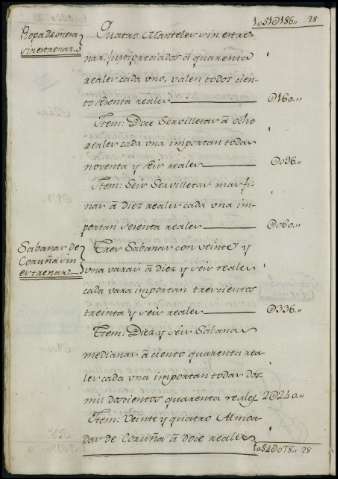 1„51Ɒ186„ 28
Ropa de mesa
sin estrenar
Quatro Manteles sin estre-
nar, apreciados á quarenta
reales cada uno, valen todos cien-
to sesenta reales Ɒ160„
Item: Doce Servilletas á ocho
reales cada una importan todas
noventa y seis reales Ɒ096„
Item: Seis Servilletas mas fi-
nas á diez reales cada una im-
portan sesenta reales Ɒ060„
Sabanas de
Coruña sin
estrenar
Tres Sabanas con veinte y
una varas á diez y seis reales
cada vara importan trescientos
treinta y seis reales Ɒ336„
Item: Diez y seis Sabanas
medianas á ciento quarenta rea-
les cada una importan todas dos
mil doscientos quarenta reales 2Ɒ240„
Item: Veinte y quatro Almoa-
das de Coruña á doce reales
1„54Ɒ078„ 28